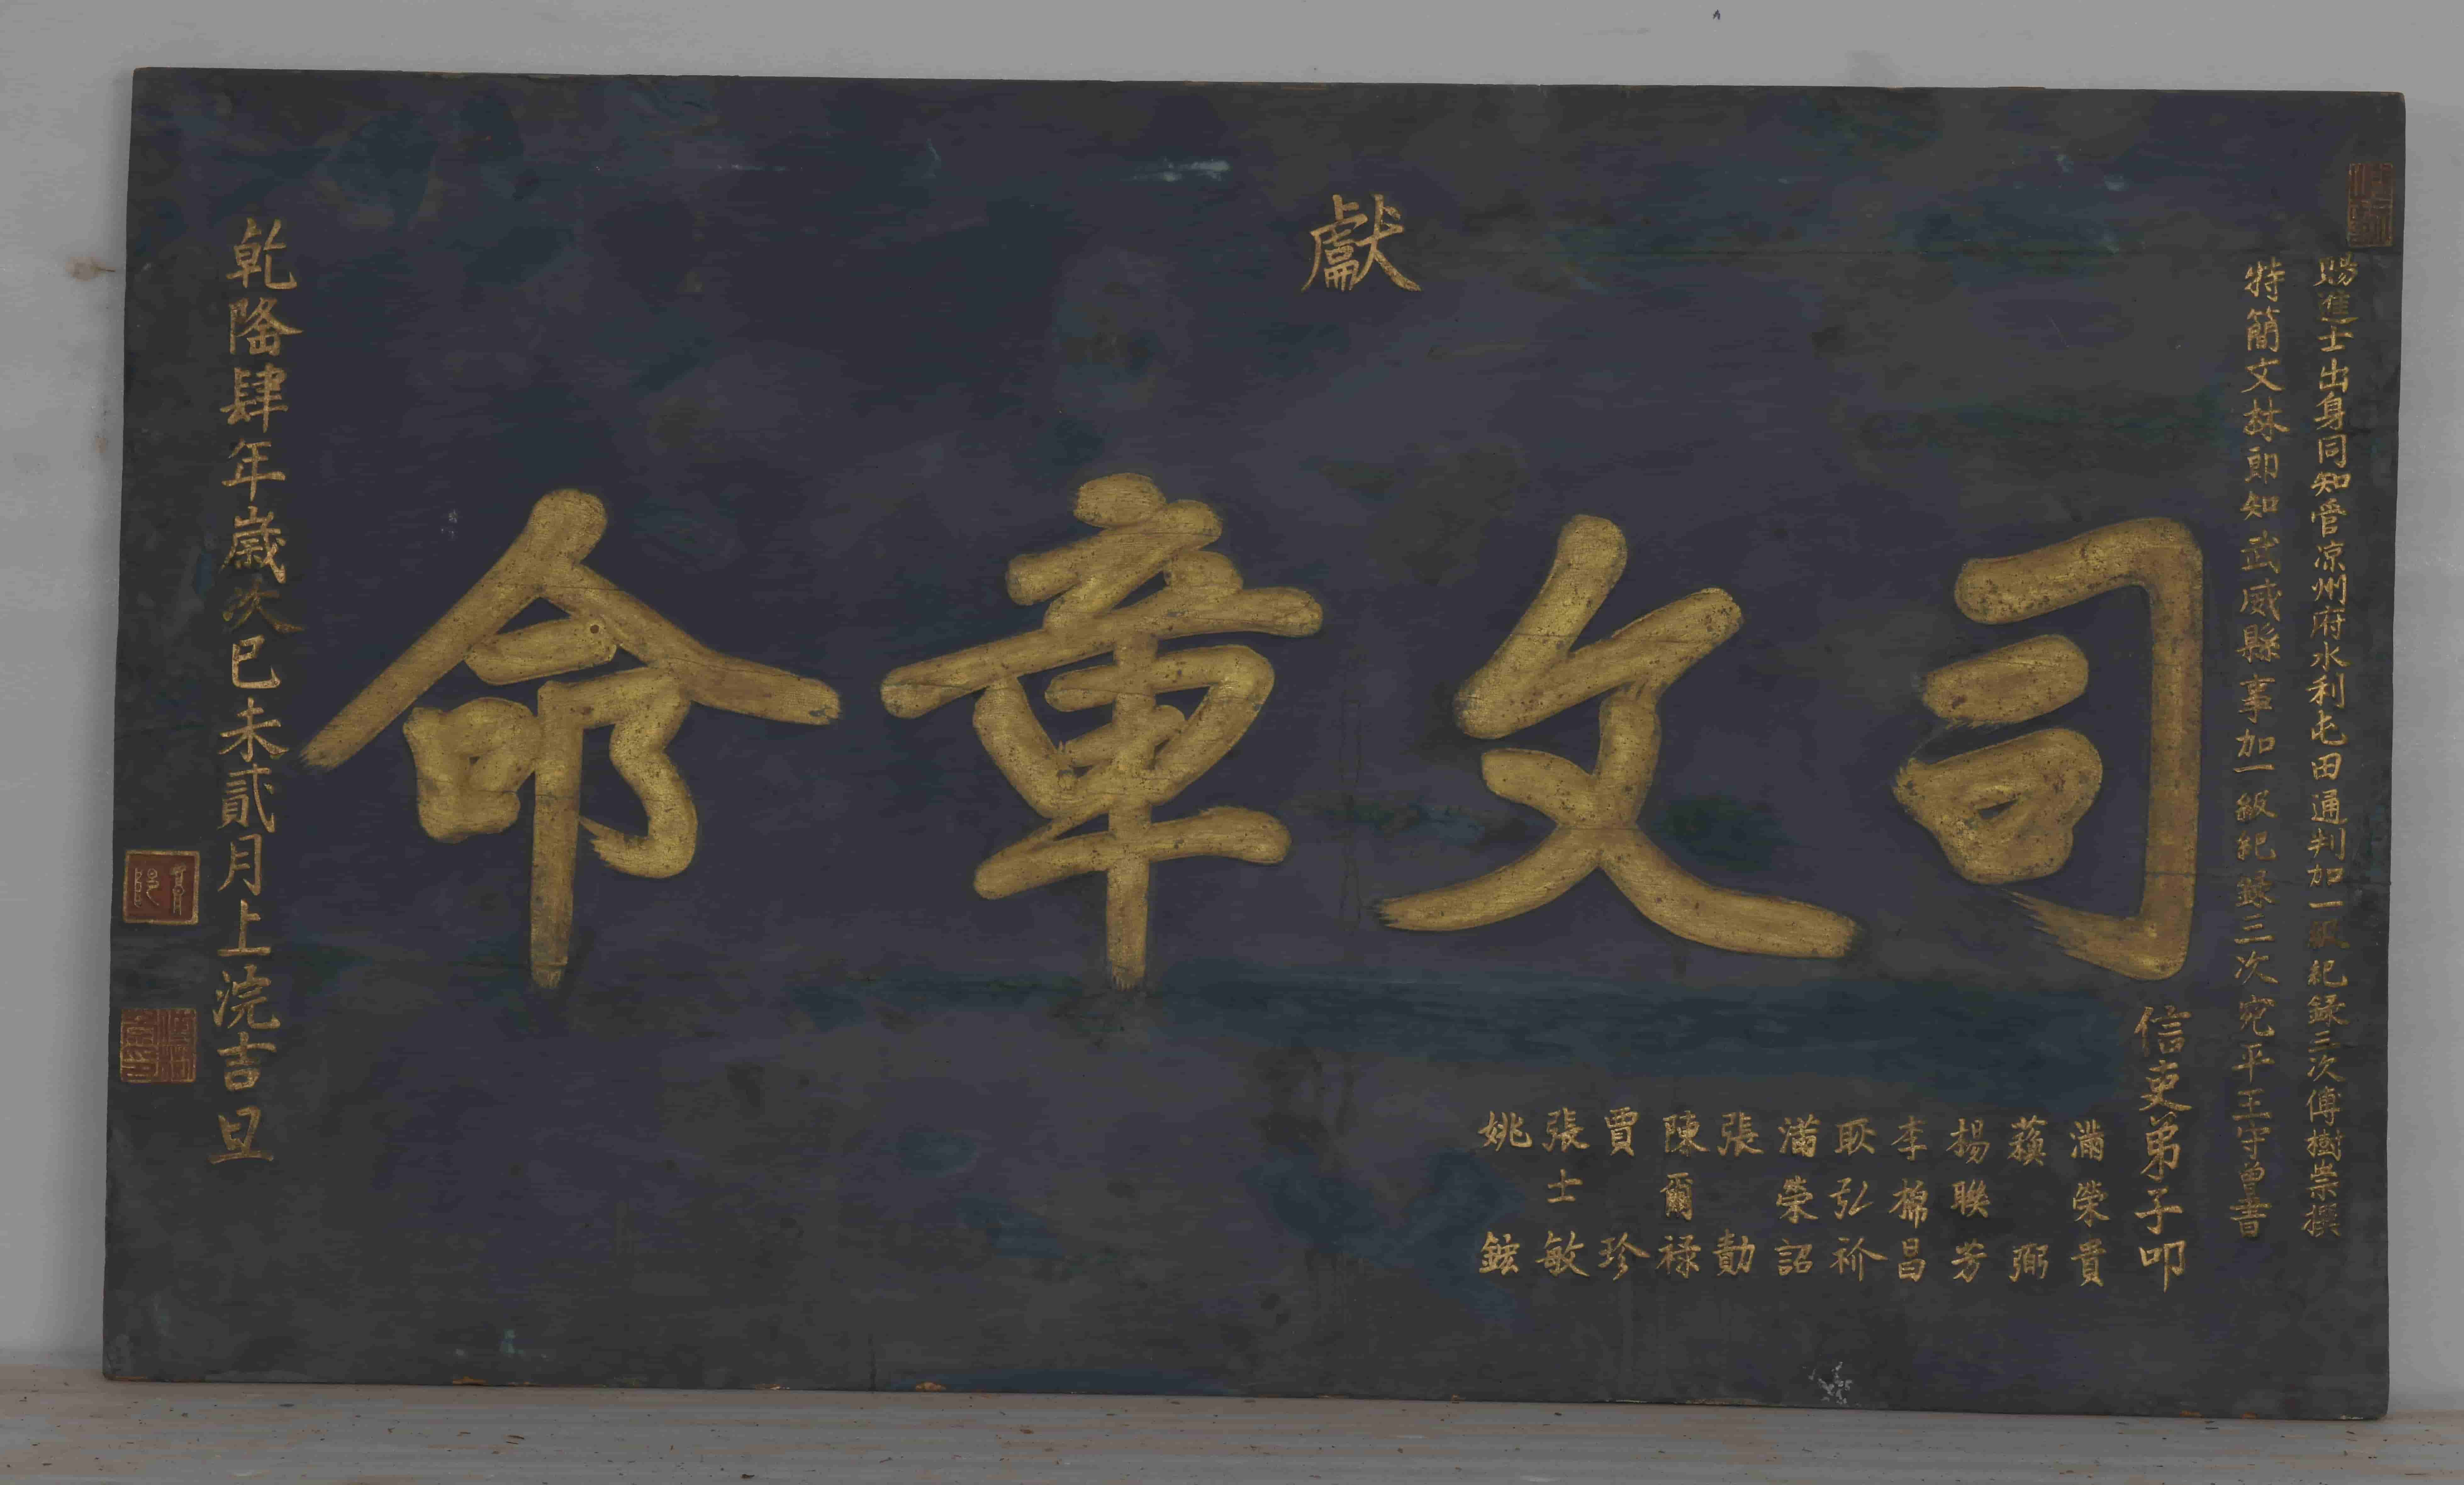 賜進士出身同知管凉州府水利屯田通判加一級紀録三次傅樹崇撰
特簡文林郎知武威縣事加一級紀録三次宛平王守曾書
獻
司文章命
信吏弟子叩
滿榮貴
蘓弼
楊聯芳
李棉昌
耿弘祚
滿榮詔
張勳
陳爾禄
賈珍
張士敏
姚鉉
乾隆肆年歲次己未貳月上浣吉旦